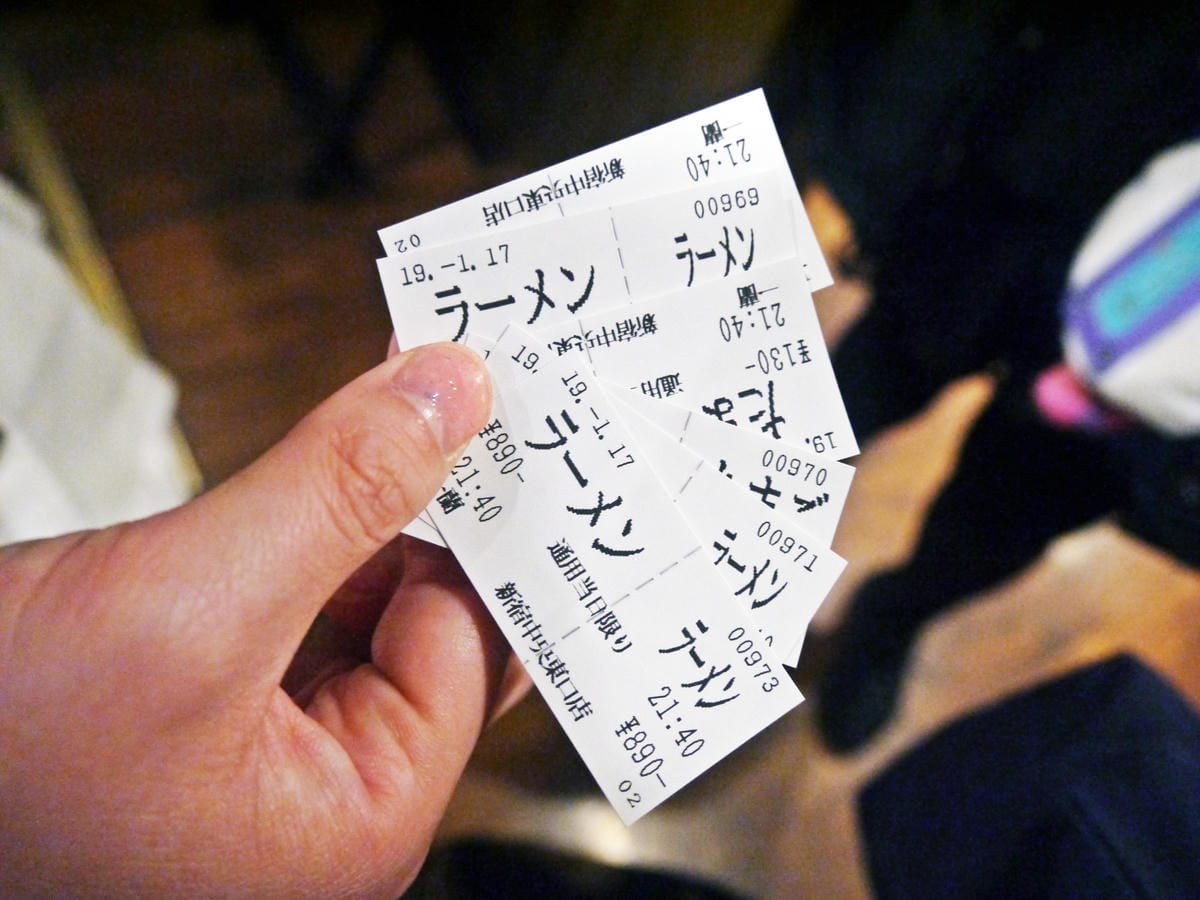 一蘭
21:40
新宿中央東口店
02
19.-1.17
ラーメン
00969
ラーメン
一蘭
21:40
新宿中央東
¥130-
通用
19.
00970
19.
00971
ラーメン
19.-1.17
ラーメン
¥890-
21:40
一蘭
通用当日限り
新宿中央東口店
00973
ラーメン
21:40
¥890-
02